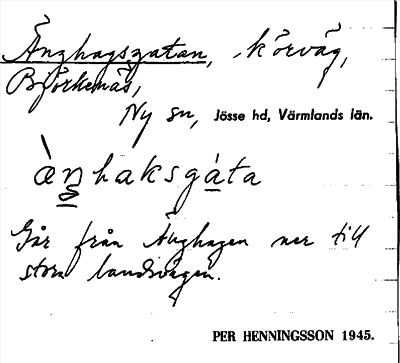 Änghagsgatan, körväg,
Björkenäs,
Ny sn, Jösse hd, Värmlands län.
àŋhaksgáta
Går från Änghagen ner till
stora landsvägen.
PER HENNINGSSON 1945.